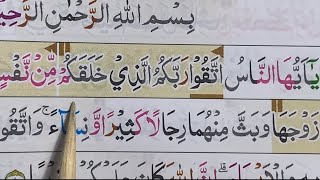 بِسْمِ اللهِ الرَّحْمٰنِ الرَّحِيْمِ
يٰۤاَيُّهَا النَّاسُ اتَّقُوْا رَبَّكُمُ الَّذِيْ خَلَقَكُمْ مِّنْ نَّفْسٍ
زَوْجَهَا وَبَثَّ مِنْهُمَا رِجَالًا كَثِيْرًا وَّنِسَآءً ۚ وَاتَّقُوا
اِنَّ اللهَ كَانَ